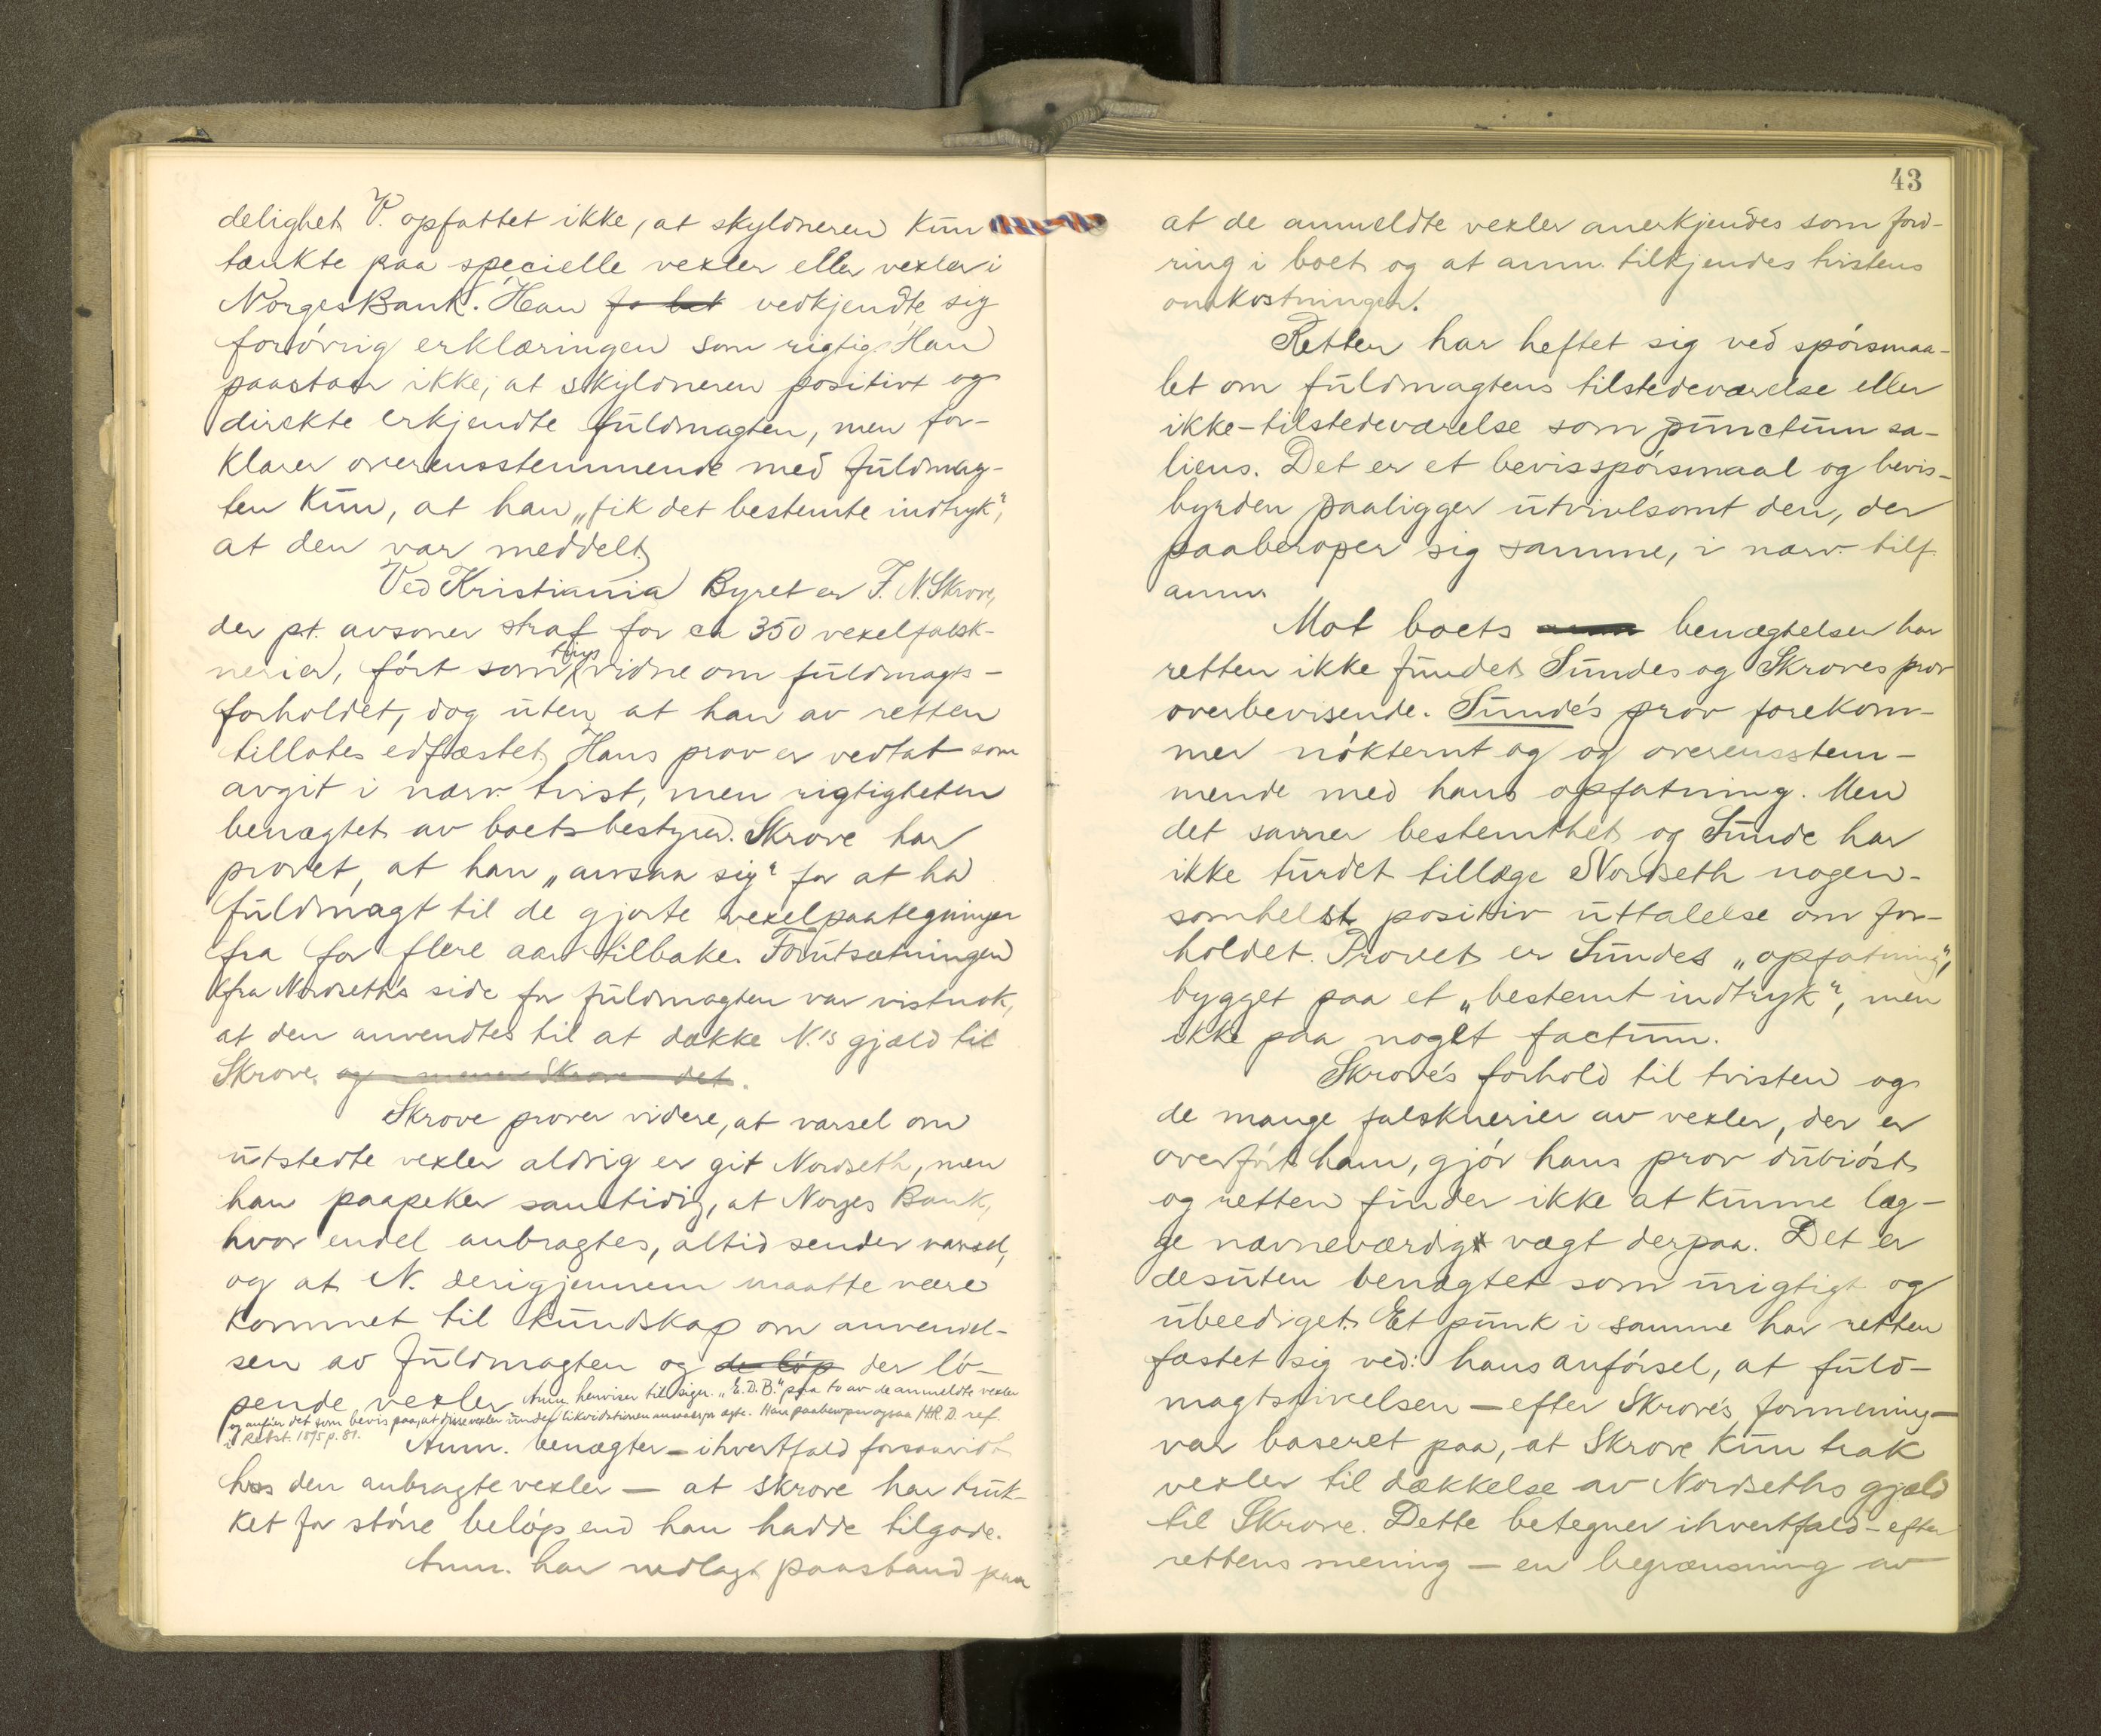 delighet. V. opfattet ikke, at skyldneren kun
tænkte paa specielle vexler eller vexler i
Norges Bank. Han vedkjendte sig
forøvrig erklæringen som rigtig. Han
paastaar ikke, at skyldneren positivt og
direkte erkjendte fuldmagten, men for-
klarer overensstemmende med fuldmag-
ten kun, at han „fik det bestemte indtryk“,
at den var meddelt.
Ved Kristiania Byret er F. N. Skrove,
der pt. avsoner straf for ca 350 vexelfalsk-
nerier, ført som vidne om fuldmagts-
forholdet, dog uten at han av retten
tillotes edfæstet. Hans prov er vedtat som
avgit i nærv. tvist, men rigtigheten
benægtet av boets bestyrer. Skrove har
provet, at han „ansaa sig“ for at ha
fuldmagt til de gjorte vexelpaategninger
fra for flere aar tilbake. Forutsætningen
fra Nordseth's side for fuldmagten var vistnok,
at den anvendtes til at dække N.'s gjæld til
Skrove. og mener Skrove det.
Skrove prover videre, at varsel om
utstedte vexler aldrig er git Nordseth, men
han paapeker samtidig, at Norges Bank,
hvor endel anbragtes, altid sender varsel,
og at N. derigjennem maatte være
kommet til kundskap om anvendel-
sen av fuldmagten og de løp der lø-
pende vexler. Anm. henviser til sign. „E. D. B.“ paa to av de anmeldte vexler
og anfører det som bevis paa, at disse vexler under likvidationen ansaaes for ægte. Han paaberoper ogsaa H.R.D. ref.
i Retst. 1875 p. 81.
Anm. benægter – ihvertfald forsaavidt
hos den anbragte vexler – at Skrove har truk-
ket for større beløp end han hadde tilgode.
Anm. har nedlagt paastand paa
43
at de anmeldte vexler anerkjendes som ford-
ring i boet og at anm. tilkjendes tvistens
omkostninger.
Retten har heftet sig ved spørsmaa-
let om fuldmagtens tilstedeværelse eller
ikke-tilstedeværelse som punctum sa-
liens. Det er et bevisspørsmaal og bevis-
byrden paaligger utvivlsomt den, der
paaberoper sig samme, i nærv. tilf.
anm.
Mot boets benægtelser har
retten ikke fundet Sundes og Skroves prov
overbevisende. Sunde's prov forekom-
mer nøkternt og og overensstem-
mende med hans opfatning. Men
det savner bestemthet og Sunde har
ikke turdet tillægge Nordseth nogen-
somhelst positiv uttalelse om for-
holdet. Provet er Sundes „opfatning“,
bygget paa et „bestemt indtryk“, men
ikke paa noget factum.
Skrove's forhold til tvisten og
de mange falsknerier av vexler, der er
overført ham, gjør hans prov dubiøst
og retten finder ikke at kunne læg-
ge nævneværdig vægt derpaa. Det er
desuten benægtet som urigtigt og
ubeediget. Et punk i samme har retten
fæstet sig ved: hans anførsel, at fuld-
magtsgivelsen – efter Skrove's formening –
var baseret paa, at Skrove kun trak
vexler til dækkelse av Nordseths gjæld
til Skrove. Dette betegner ihvertfald – efter
rettens mening – en begrænsning av